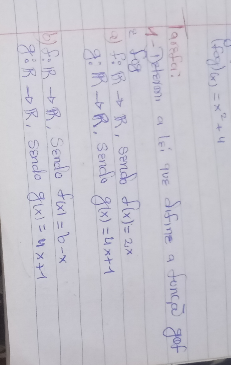 (fog)(x) = x² + 4
Tarefa:
1- Determ a lei que define a função gof
e fog
a) f: R → R, sendo f(x) = 2x
g: R → R, sendo g(x) = 4x+1
b) f: R → R, sendo f(x) = 6-x
g: R → R, sendo g(x) = 4x+1